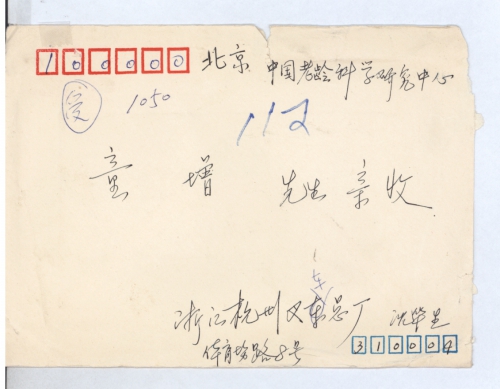 100000 北京 中国老龄科学研究中心
受 1050
112
童增 先生 亲收
浙江杭州叉车总厂 沈毕生
体育场路8号
310004